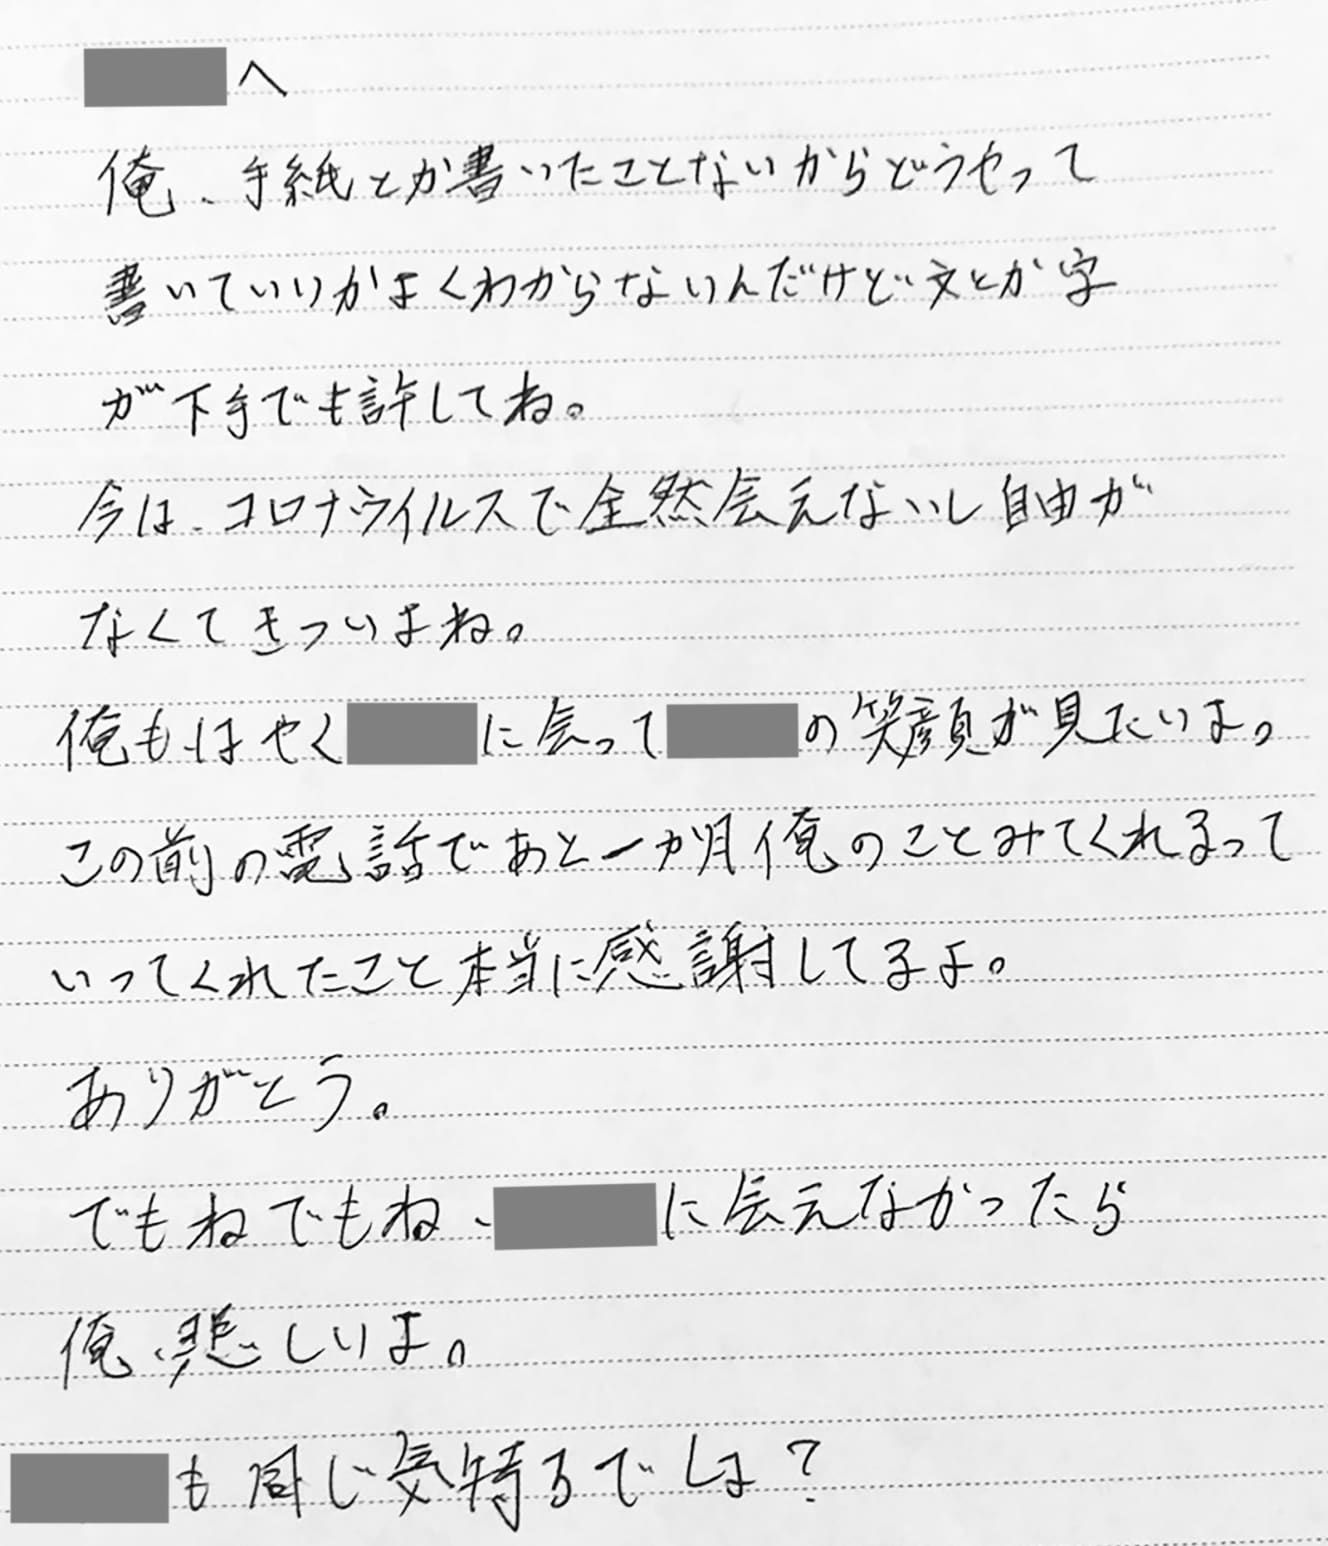 へ
俺、手紙とか書いたことないからどうやって
書いていいかよくわからないんだけど文とか字
が下手でも許してね。
今は、コロナウイルスで全然会えないし自由が
なくてきついよね。
俺もはやく に会って の笑顔が見たいよ。
この前の電話であと一か月俺のことみてくれるって
いってくれたこと本当に感謝してるよ。
ありがとう。
でもねでもね、 に会えなかったら
俺、悲しいよ。
も同じ気持るでしょ？